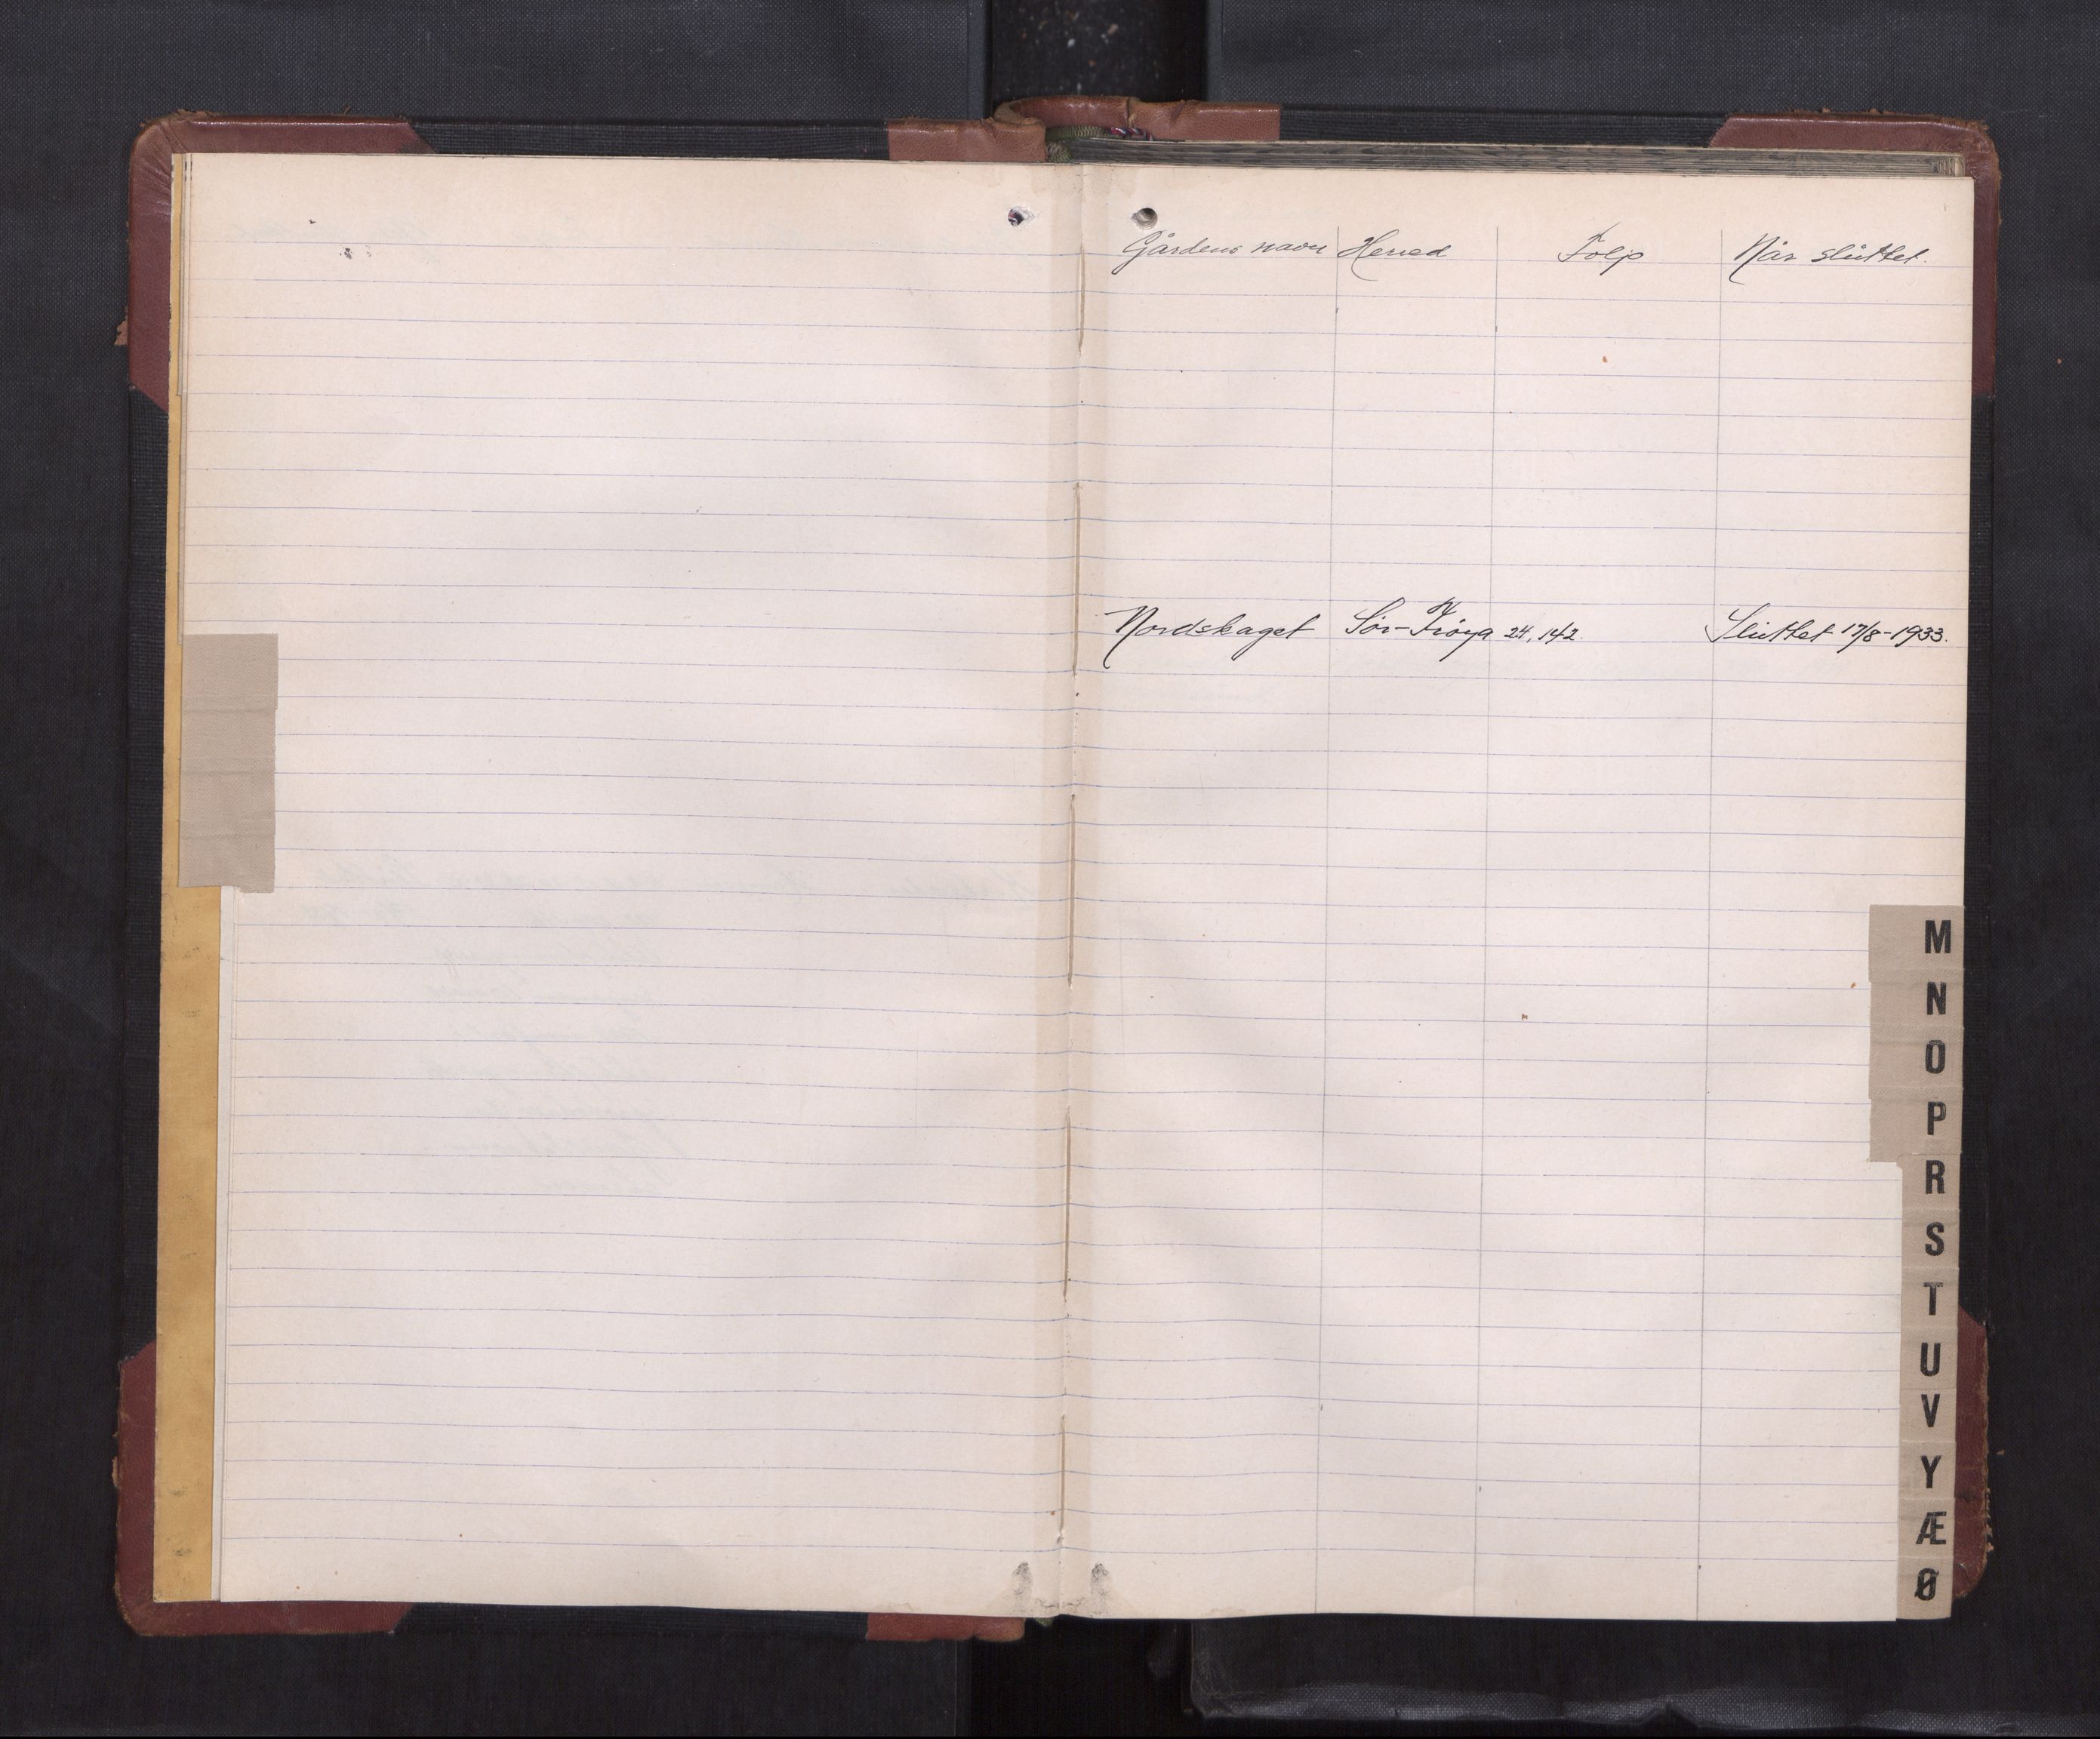 Gårdens navn Herred Folio Når sluttet.
Nordskaget Sør-Frøya 24, 142. Sluttet 17/8-1933.
M
N
O
P
R
S
T
U
V
Y
Æ
Ø